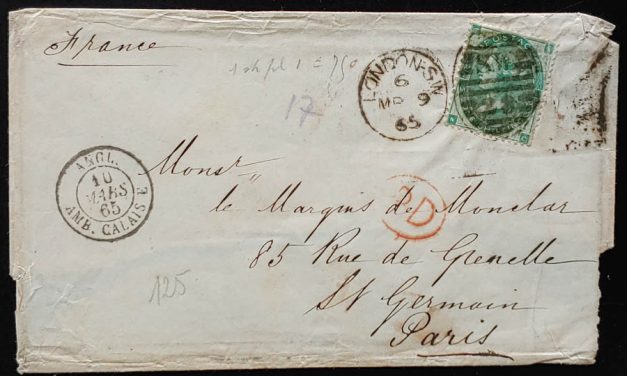 France
1 sh pl 1 = 750
17
LONDON-S.W
6
MR 9
65
ANGL.
10
MARS
65
AMB. CALAIS E
PD
Monsr
le Marquis de Monclar
85 Rue de Grenelle
St Germain
Paris
125